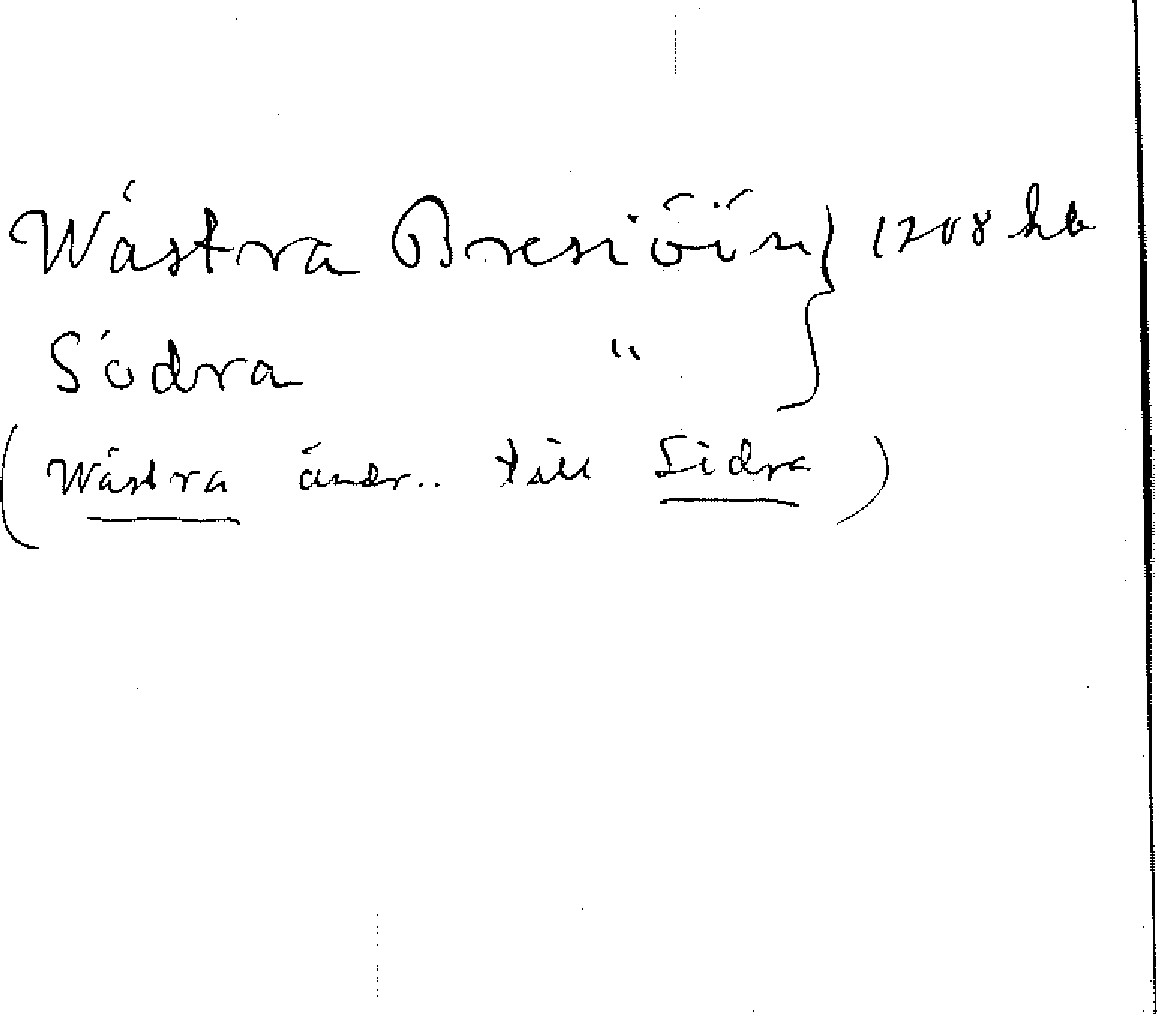 Wästra Bresiöön } 1708 hb
Södra "
(Wästra ändr.. till Södra)